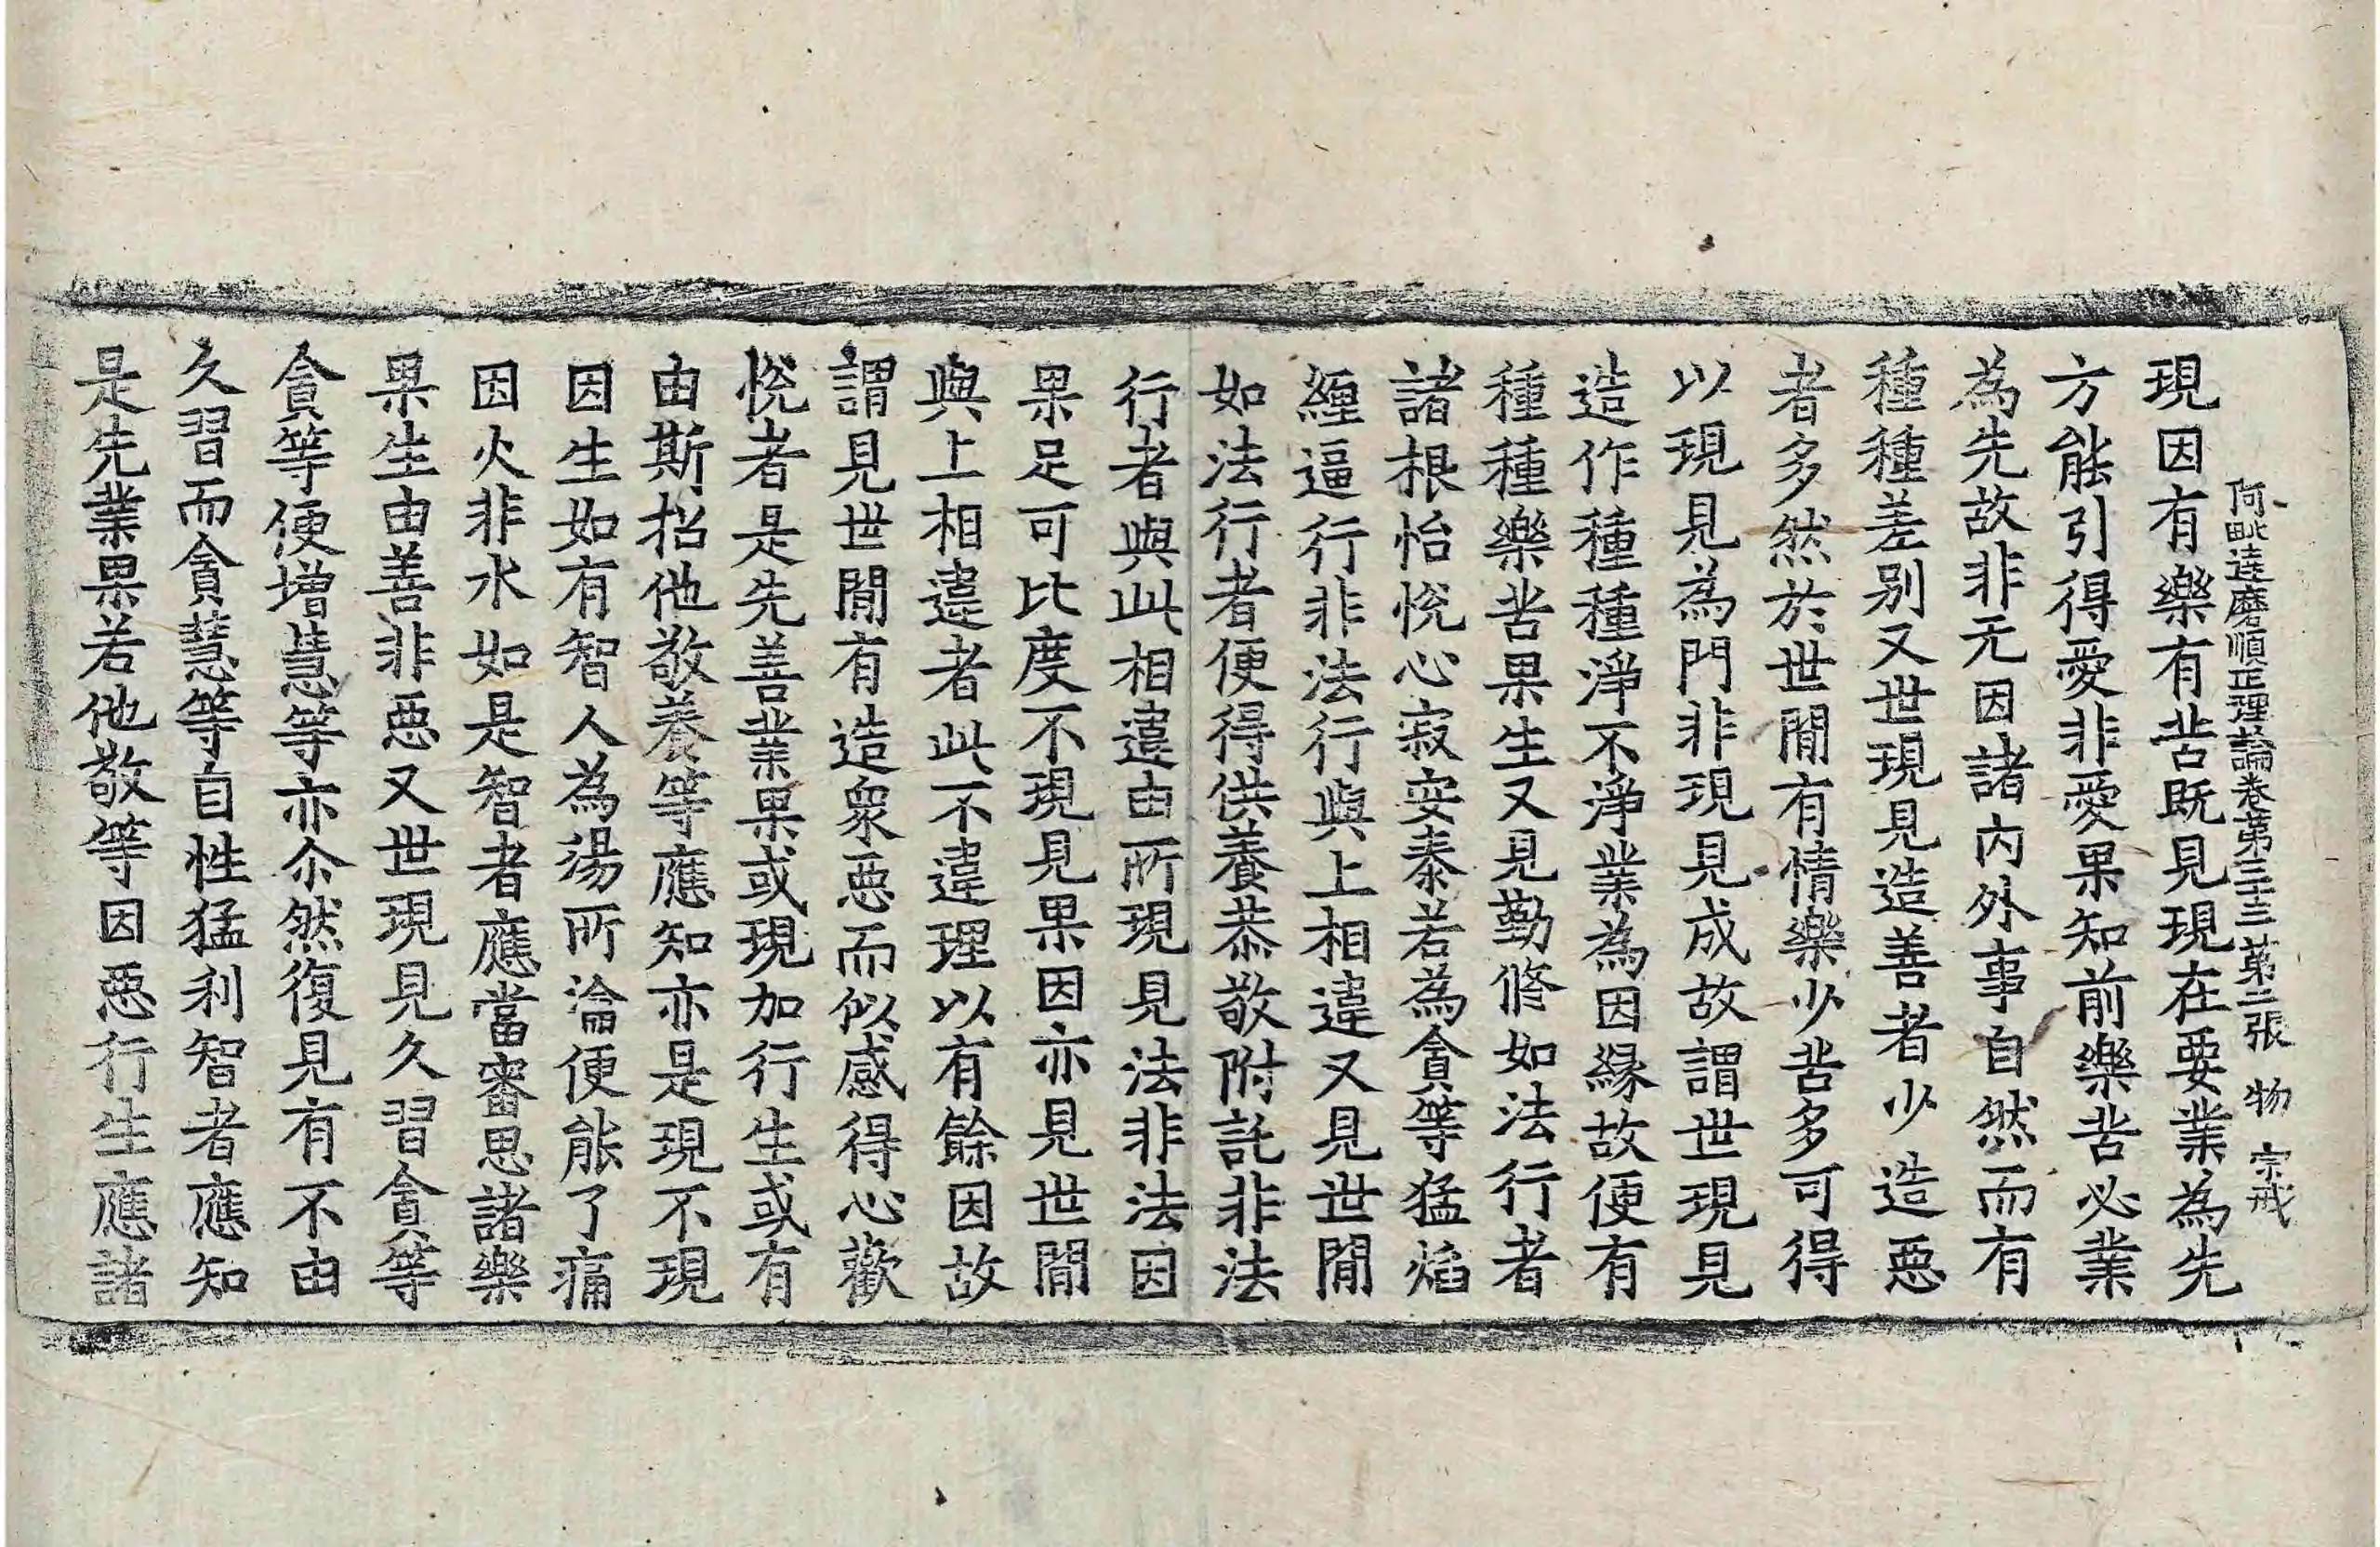 阿毗逹磨順正理論卷第三十三 第二張 物 宗戒
現因有樂有苦既見現在要業為先
方能引得愛非愛果知前樂苦必業
為先故非无因諸内外事自然而有
種種差别又世現見造善者少造惡
者多然於世間有情樂少苦多可得
以現見為門非現見成故謂世現見
造作種種淨不淨業為因緣故便有
種種樂苦果生又見勤修如法行者
諸根怡悅心寂安泰若為貪等猛焰
纏逼行非法行與上相違又見世間
如法行者便得供養恭敬附託非法
行者與此相違由所現見法非法因
果足可比度不現見果因亦見世間
與上相違者此不違理以有餘因故
謂見世間有造衆惡而似感得心歡
悅者是先善業果或現加行生或有
由斯招他敬養等應知亦是現不現
因生如有智人為湯所淪便能了痛
因火非水如是智者應當審思諸樂
果生由善非惡又世現見久習貪等
貪等便增慧等亦尒然復見有不由
久習而貪慧等自性猛利智者應知
是先業果若他敬等因惡行生應諸